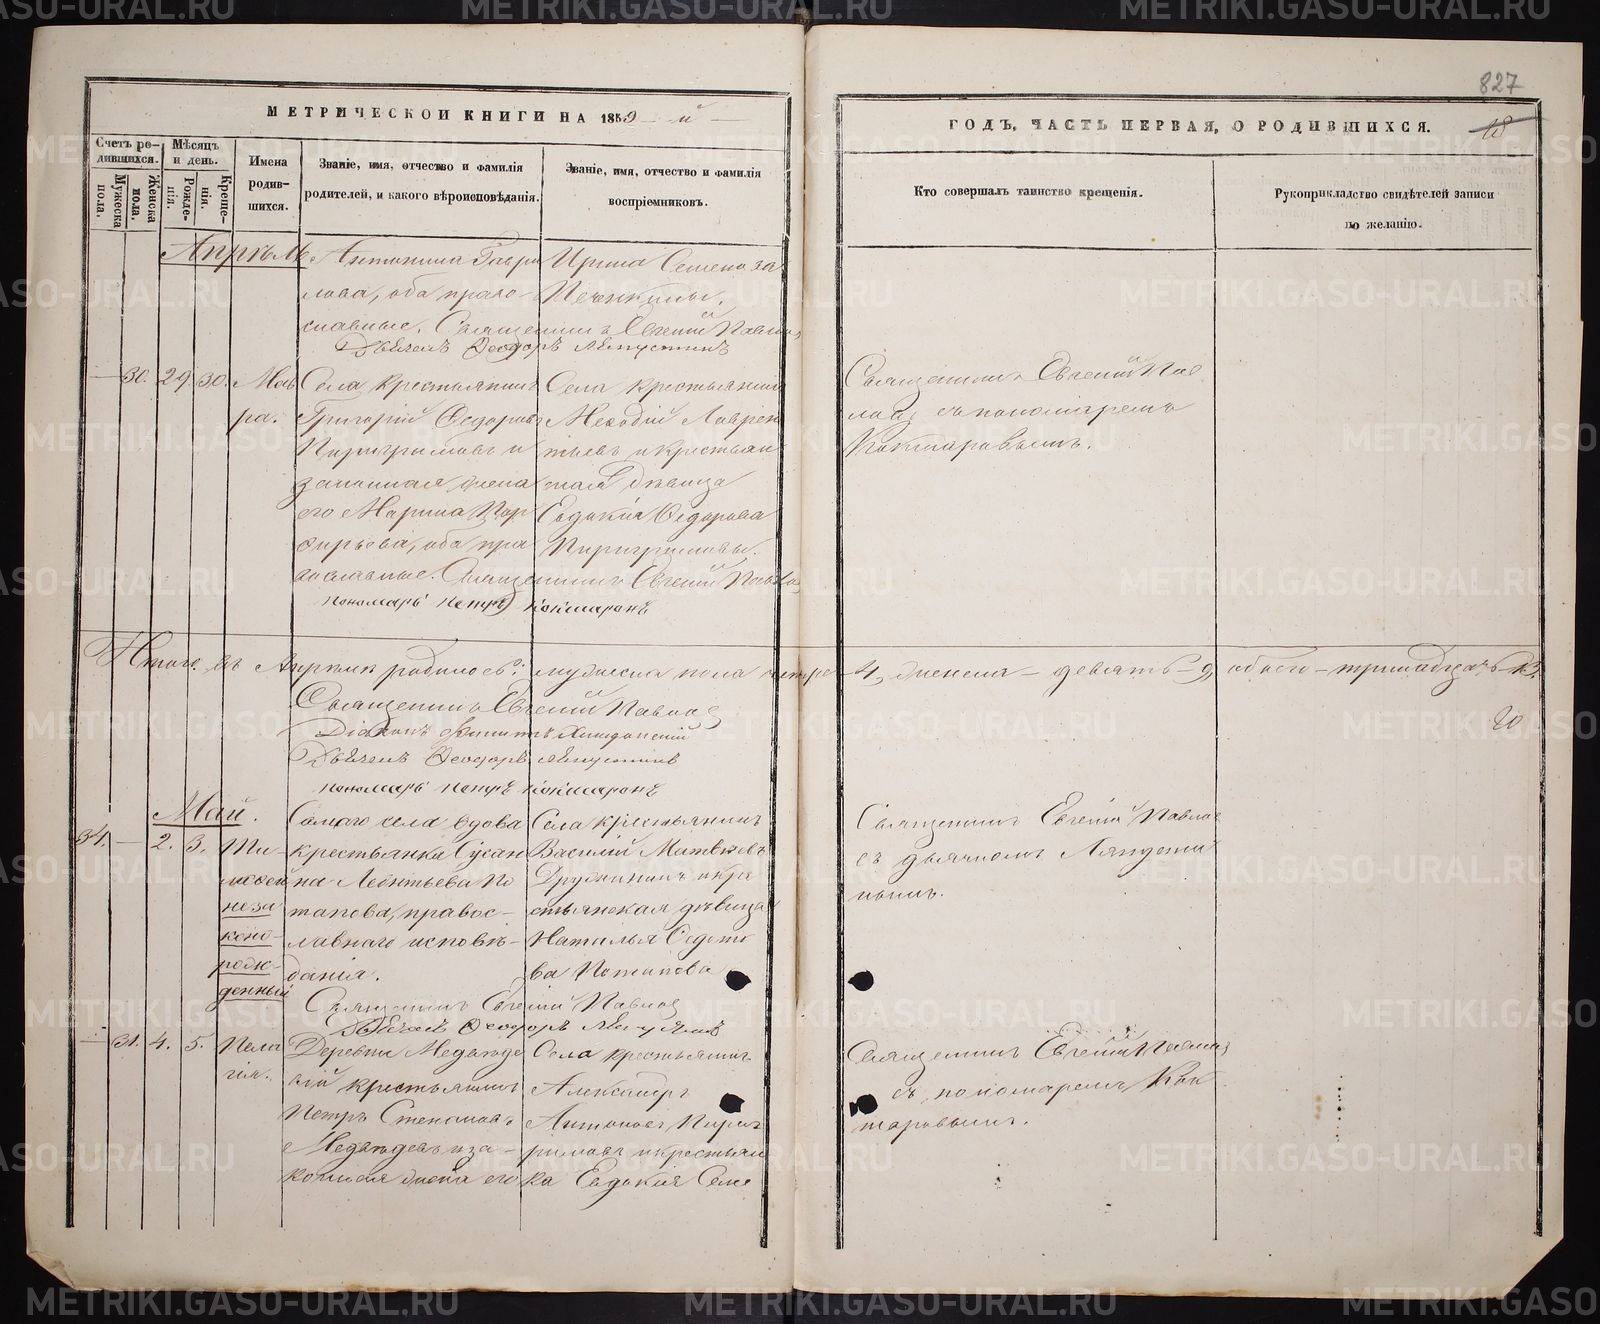 827
МЕТРИЧЕСКОЙ КНИГИ НА 1859 й
ГОДЪ, ЧАСТЬ ПЕРВАЯ, О РОДИВШИХСЯ.
18
Счетъ ро-
дившихся.
Мужеска
пола.
Женска
пола.
Мѣсяцъ
и день.
Рожде-
нія.
Креще-
нія.
Имена
родив-
шихся.
Званіе, имя, отчество и фамилія
родителей, и какого вѣроисповѣданія.
Званіе, имя, отчество и фамилія
воспріемниковъ.
Кто совершалъ таинство крещенія.
Рукоприкладство свидѣтелей записи
по желанію.
Апрѣль.
Антонина Гаври
лова, оба право-
славные. Священникъ Евгеній Павлов
Дьячекъ Ѳеодоръ Ляпустинъ
Ирина Семенова
30. 29. 30. Мав
ра.
Села крестьянинъ
Григорій Ѳедоровъ
Пиригримовъ и
законная жена
его Марина Пор
фирьева, оба пра
вославные. Священникъ Евгеній Павлов
пономарь Петръ Кокшаровъ
Села крестьянинъ
Меѳодій Лаврен
тьевъ и крестьян
ская дѣвица
Евдокія Ѳедорова
Пиригримовы.
Священникъ Евгеній Пав
лов, съ пономаремъ
Кокшаровымъ.
Итого въ Апрѣлѣ родилось: мужеска пола четыре 4, женска – девять – 9, обоего – тринадцать 13.
Священникъ Евгеній Павлов
Діаконъ
Дьячекъ Ѳеодоръ Ляпустинъ
пономарь Петръ Кокшаровъ
Май.
31. — 2. 3. Ти
моѳей
неза
коно-
рож-
денный
Самаго села вдова
крестьянка Сусан
на Леонтьева По
тапова, правос-
лавнаго исповѣ-
данія.
Священникъ Евгеній Павлов
Дьячекъ Ѳеодоръ Ляпустинъ
Села крестьянинъ
Василій Матвѣевъ
Дружининъ и кре
стьянская дѣвица
Наталья Ѳедото
ва Потапова
Священникъ Евгеній Павлов
съ дьячкомъ Ляпусти
нымъ.
31. 4. 5. Пела
гія.
Деревни Медвѣде
вой крестьянинъ
Петръ Степановъ
Медвѣдевъ и за-
конная жена его
Села крестьянинъ
Александръ
Антоновъ Пириг
римовъ и крестьян
ка Евдокія Семе
Священникъ Евгеній Павлов
съ пономаремъ Кок
шаровымъ.